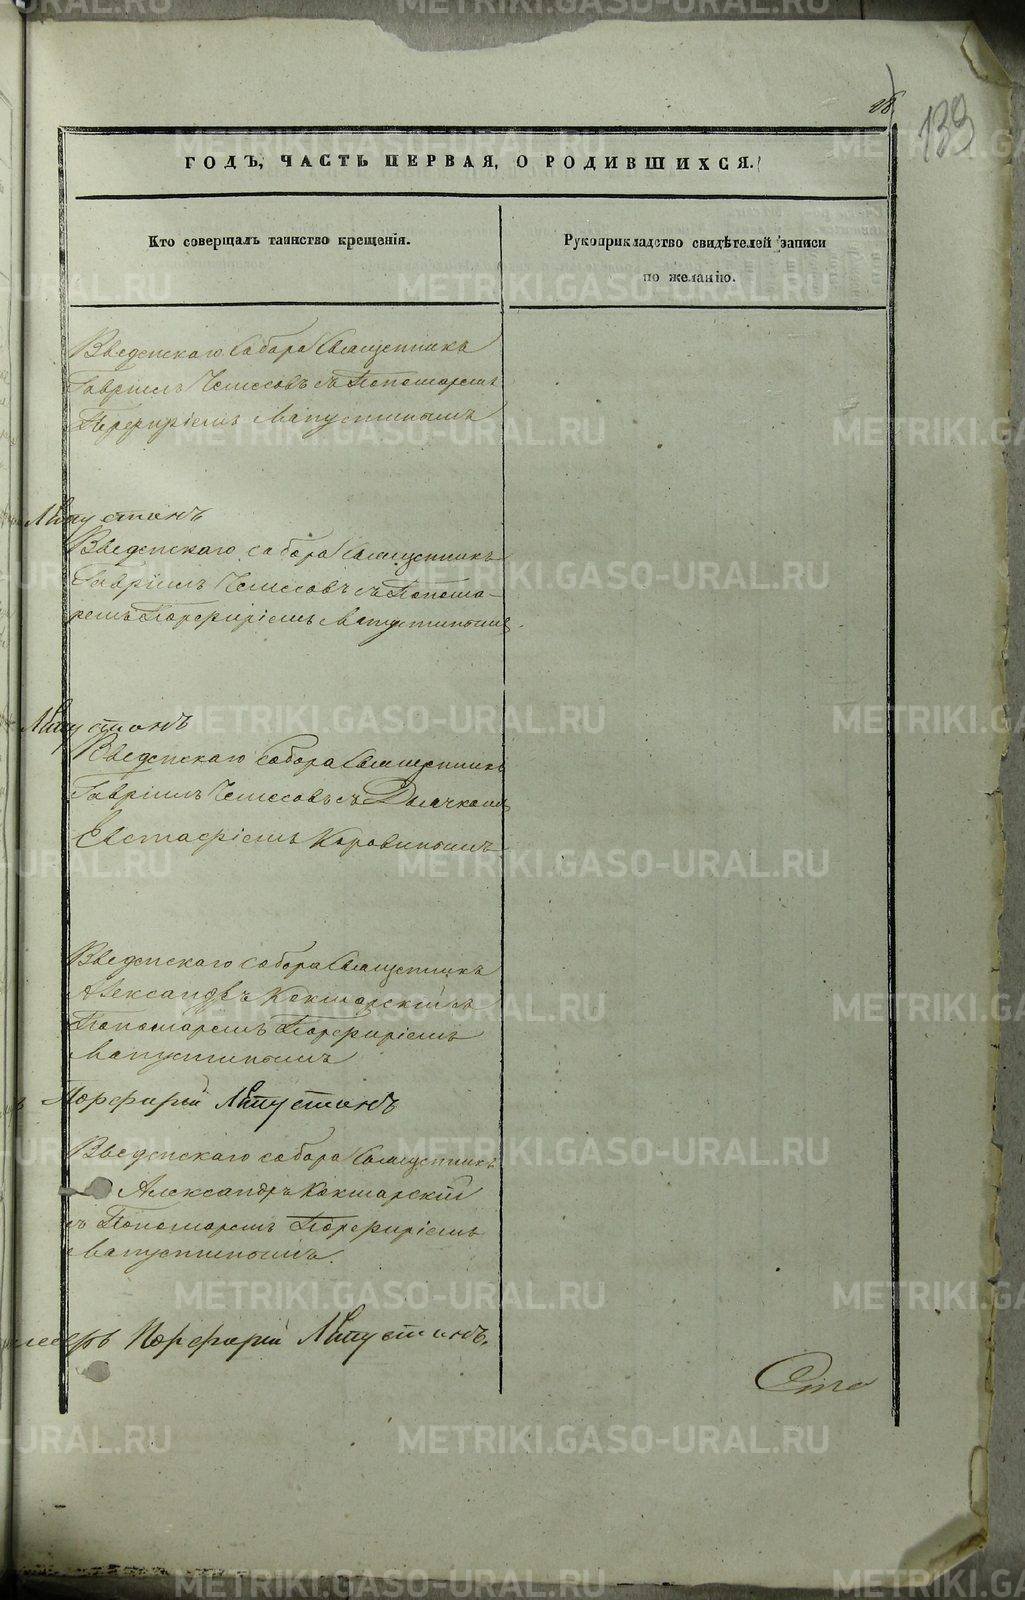 28
139
ГОДЪ, ЧАСТЬ ПЕРВАЯ, О РОДИВШИХСЯ.
Кто совершалъ таинство крещенія.
Рукоприкладство свидѣтелей записи
по желанію.
Введенскаго Собора Священникъ
Гавріилъ Чемесовъ съ Пономаремъ
Порфиріемъ Лапустинымъ
Лапустинъ
Введенскаго собора Священникъ
Гавріилъ Чемесовъ съ Понома-
ремъ Порфиріемъ Лапустинымъ.
Лапустинъ
Введенскаго Собора Священникъ
Гавріилъ Чемесовъ съ Дьячкомъ
Евстафіемъ Коровинымъ
Введенскаго собора Священникъ
Александръ Кокшарскій съ
Пономаремъ Порфиріемъ
Лапустинымъ
Порфирій Лапустинъ
Введенскаго собора Священникъ
Александръ Кокшарскій
съ Пономаремъ Порфиріемъ
Лапустинымъ.
Порфирій Лапустинъ.
METRIKI.GASO-URAL.RU